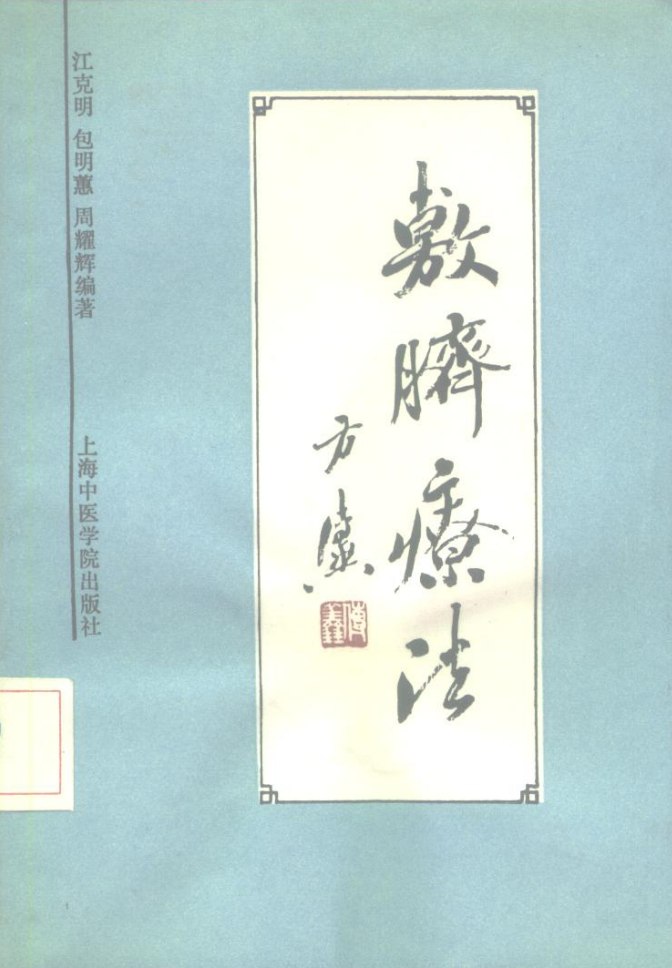 敷臍療法
方
江克明 包明蕙 周耀辉编著
上海中医学院出版社